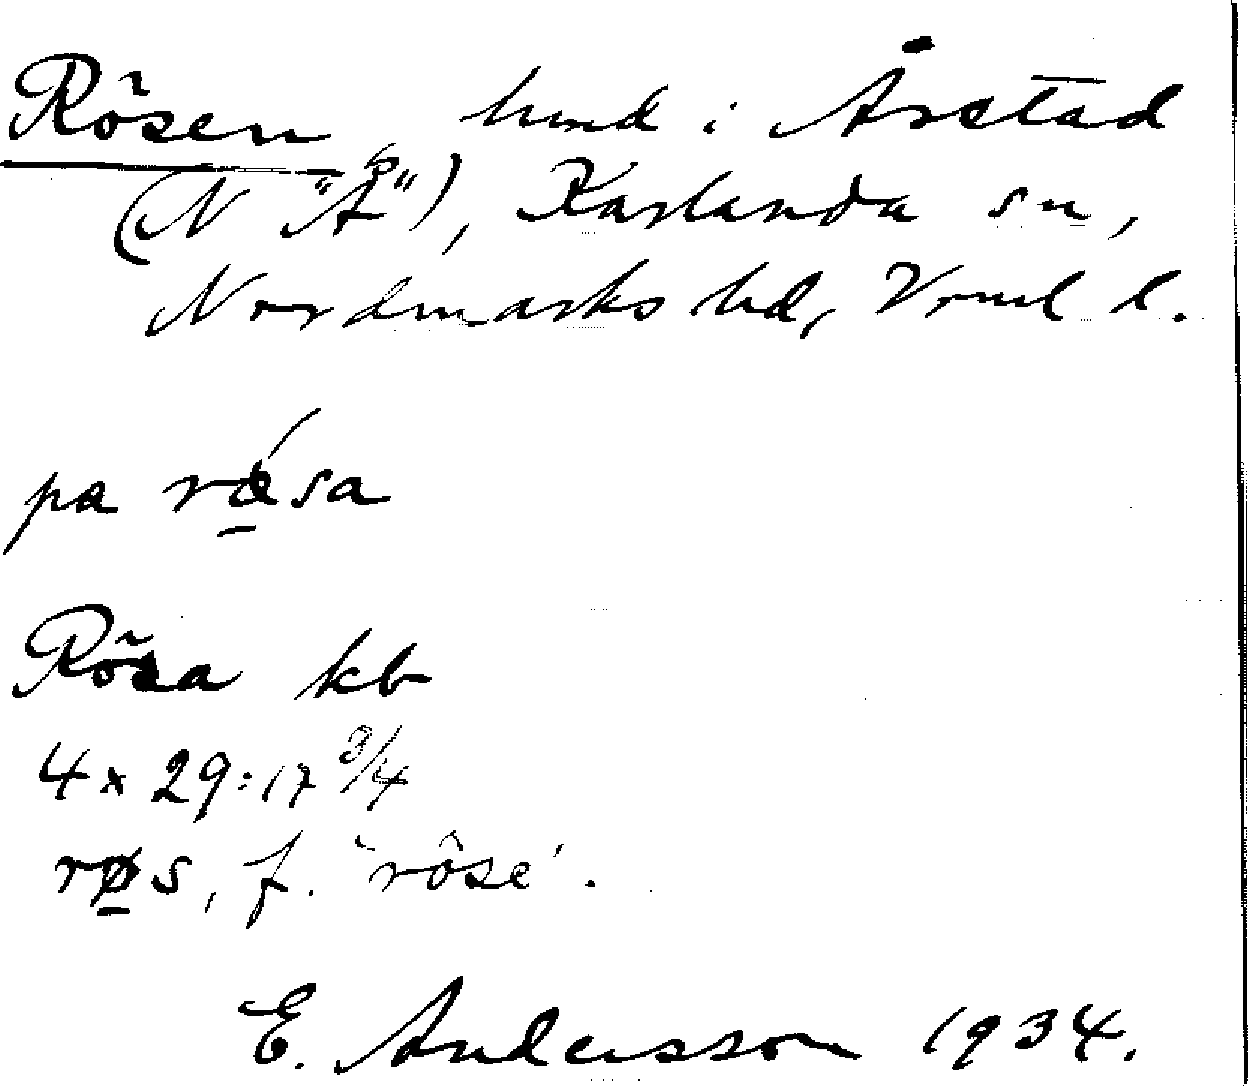 Rösen, hmd i Årstad
(N "Å"), Karlanda sn,
Nordmarks hd, Vrml l.
pa rǿ̱sa
Rösa kb
4 x 29:17 3/4
rø̱s, f. 'röse'.
E. Andersson 1934.